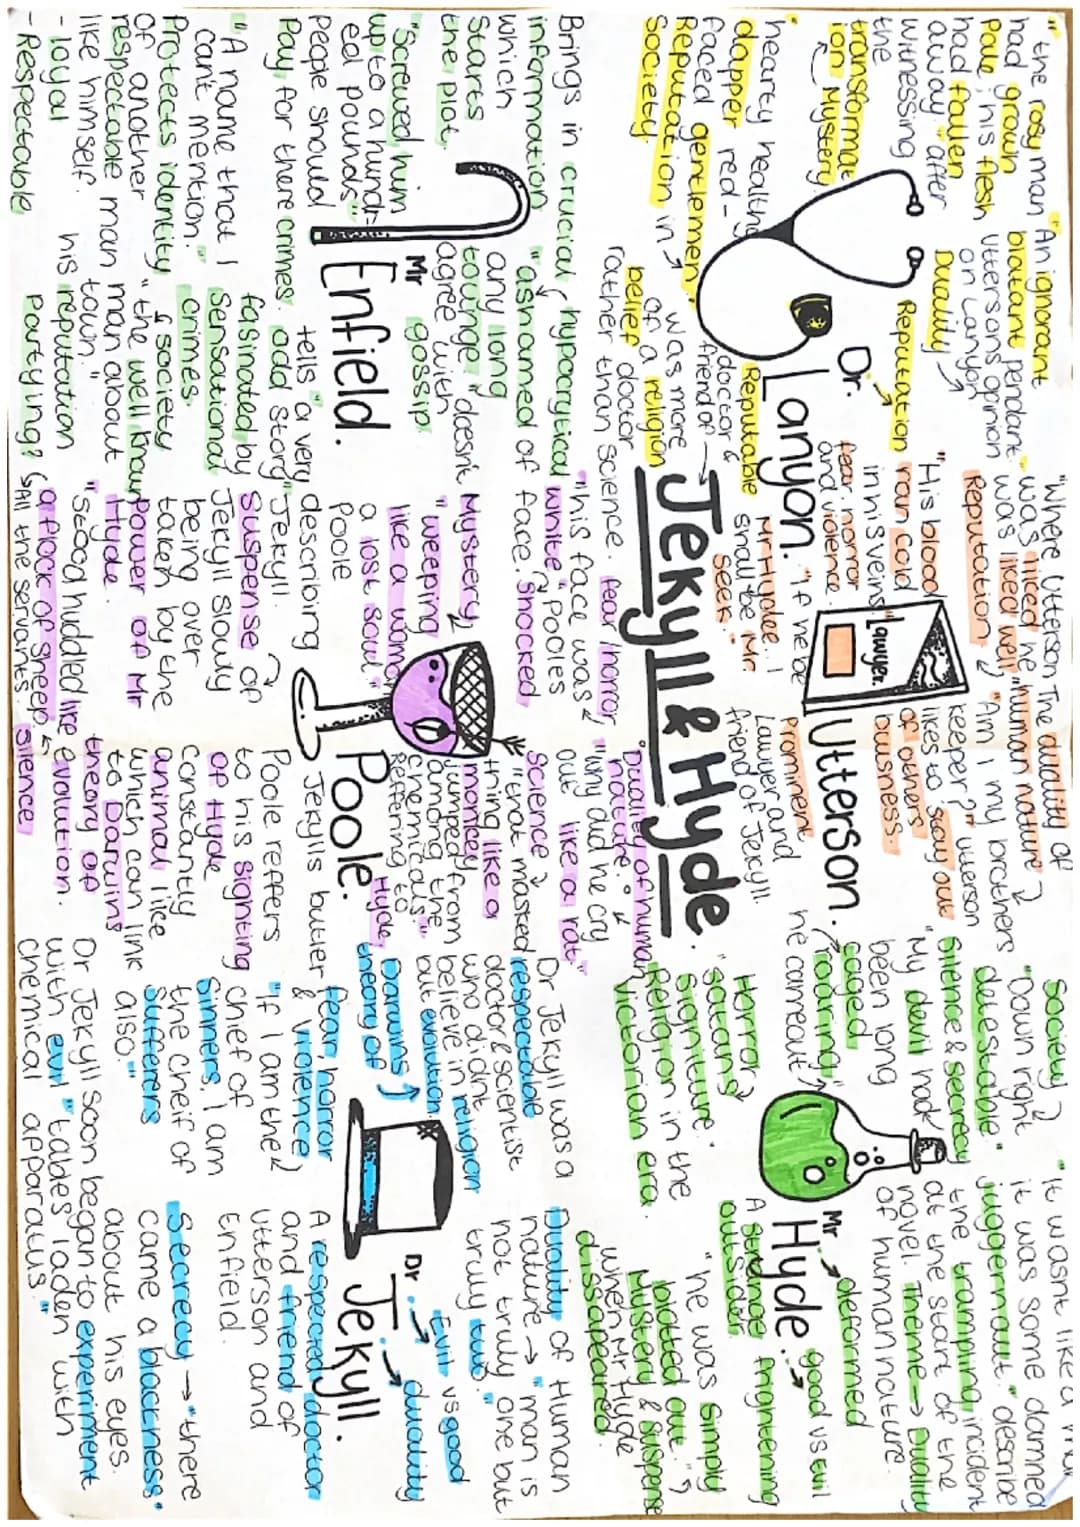 "the rosy man
had grown
pale, his flesh
had fallen
away" after
witnessing
the
transformat
ion Mystery
"An ignorant
blatant pendant."
Uttersons opinion
on Lanyon
Duality
Reputation
Dr.
Lanyon.
"hearty healthy
dapper red-
faced gentlemen"
Reputation in
Society.
Reputable
doctor &
friend of
was more
of a religion
belief doctor
rather than science.
"Where Utterson
was liked he
was liked well."
Reputation
"His blood
ran cold
in his veins."
fear, horror
and violence.
"If he be
Mr Hyde... I
shall be Mr
Seek."
Lawyer.
The duality of
"human nature"
"Am I my brothers
keeper?" utterson
likes to stay out
of others
buisness.
Utterson.
Prominent
Lawyer and
friend of Jekyll.
Society
"Down right
detestable."
Silence & secrecy
"My devil had
been long
caged
he came out
roaring"
"It wasn't like a man
it was some damned
juggernaut." describe
the trampling incident
at the start of the
novel. Theme → Duality
of human nature.
Mr
Hyde.
deformed
good vs evil
A stranger frightening
outsider.
"he was simply
blotted out."
Mystery & suspense
when Mr Hyde
dissapeared.
Horror
"satans
signiture."
Religion in the
Victorian era.
Jekyll & Hyde.
Brings in crucial
information
which
starts
the plot.
"Screwed him
up to a hundr
ed pounds"
People should
Pay, for there crimes.
"A name that I
cant mention."
Protects identity
of another
respectable man
like himself.
- loyal
- Respectable
hypocritical
"ashnamed of
any long
tounge" doesn't
agree with
gossip.
Mr
Enfield.
tells "a very
odd story"
fasinated by
Sensational
crimes.
& society
"the well known
man about
town."
his reputation
Partying?
fear, horror
"his face was
white," Pooles
face. shocked
Mystery
"weeping
like a woman
a lost soul"
Poole
describing
Jekyll.
Suspense of
Jekyll slowly
being over
taken by the
power of Mr
Hyde.
"Stood huddled like
a flock of sheep
All the servants silence
"Duality of human
nature"
"why did he cry
out like a rat."
Science
"that masked
thing like a
monkey
jumped from
among the
chemicals"
reffering to
Hyde
Poole.
Jekylls butler
Poole reffers
to his sighting
of Hyde
constantly
animal like
which can link
to Darwins
theory of
evolution.
Dr Jekyll was a
respectable
doctor & scientist
who didnt
believe in religion
but evolution.
Darwins
theory of
fear, horror
& violence
"If I am the
chief of
Sinners, I am
the cheif of
sufferers
also."
Dr Jekyll soon began to experiment
with evil "tables laden with
chemical apparatus."
Duality of Human
nature → "man is
not truly one but
truly two."
Evil vs good
duality
Dr.
Jekyll.
A respected doctor
and friend of
utterson and
Enfield.
Secrecy → "there
came a blackness
about his eyes."